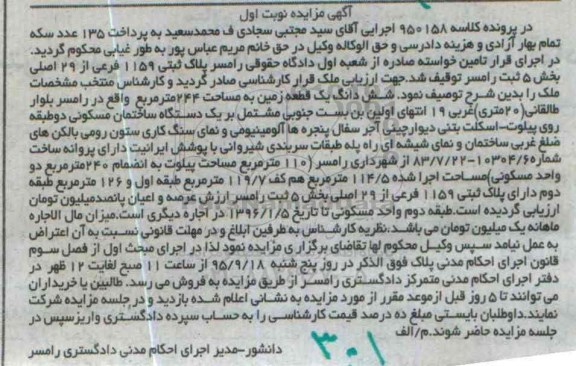 آگهی مزایده نوبت اول
در پرونده کلاسه ۹۵۰۱۵۸ اجرایی آقای سید مجتبی سجادی ف محمدسعید به پرداخت ۱۳۵ عدد سکه
تمام بهار آزادی و هزینه دادرسی و حق الوکاله وکیل در حق خانم مریم عباس پور به طور غیابی محکوم گردید.
در اجرای قرار تامین خواسته صادره از شعبه اول دادگاه حقوقی رامسر پلاک ثبتی ۱۱۵۹ فرعی از ۲۹ اصلی
بخش ۵ ثبت رامسر توقیف شد.جهت ارزیابی ملک قرار کارشناسی صادر گردید و کارشناس منتخب مشخصات
ملک را بدین شرح توصیف نمود. شش دانگ یک قطعه زمین به مساحت ۲۴۴مترمربع واقع در رامسر بلوار
طالقانی(۲۰متری)غربی ۱۹ انتهای اولین بن بست جنوبی مشتمل بر یک دستگاه ساختمان مسکونی دوطبقه
روی پیلوت-اسکلت بتنی دیوارچینی آجر سفال پنجره ها آلومینیومی و نمای سنگ کاری ستون رومی بالکن های
ضلع غربی ساختمان و نمای شیشه ای راه پله طبقات سربندی شیروانی با پوشش ایرانیت دارای پروانه ساخت
شماره۱۰۳۰۴/۶۰-۸۳/۷/۲۲ از شهرداری رامسر (۱۱۰ مترمربع مساحت پیلوت به انضمام ۲۴۰مترمربع دو
واحد مسکونی)مساحت اجرا شده ۱۱۴/۵ مترمربع هم کف ۱۱۹/۷ مترمربع طبقه اول و ۱۲۶ مترمربع طبقه
دوم دارای پلاک ثبتی ۱۱۵۹ فرعی از ۲۹ اصلی بخش ۵ ثبت رامسر ارزش عرصه و اعیان پانصدمیلیون تومان
ارزیابی گردیده است.طبقه دوم واحد مسکونی تا تاریخ ۱۳۹۶/۱/۵ در اجاره دیگری است.میزان مال الاجاره
ماهانه یک میلیون تومان می باشد.نظریه کارشناس به طرفین ابلاغ و در مهلت قانونی نسبت به آن اعتراض
به عمل نیامد سپس وکیل محکوم لها تقاضای برگزاری مزایده نمود لذا در اجرای مبحث اول از فصل سوم
قانون اجرای احکام مدنی پلاک فوق الذکر در روز پنج شنبه ۹۵/۹/۱۸ از ساعت ۱۱ صبح لغایت ۱۲ ظهر در
دفتر اجرای احکام مدنی متمرکز دادگستری رامسر از طریق مزایده به فروش می رسد. طالبین یا خریداران
می توانند تا ۵ روز قبل ازموعد مقرر از مورد مزایده به نشانی اعلام شده بازدید و در جلسه مزایده شرکت
نمایند.داوطلبان بایستی مبلغ ده درصد قیمت کارشناسی را به حساب سپرده دادگستری واریزسپس در
جلسه مزایده حاضر شوند.م/الف
۳۰۱
دانشور-مدیر اجرای احکام مدنی دادگستری رامسر